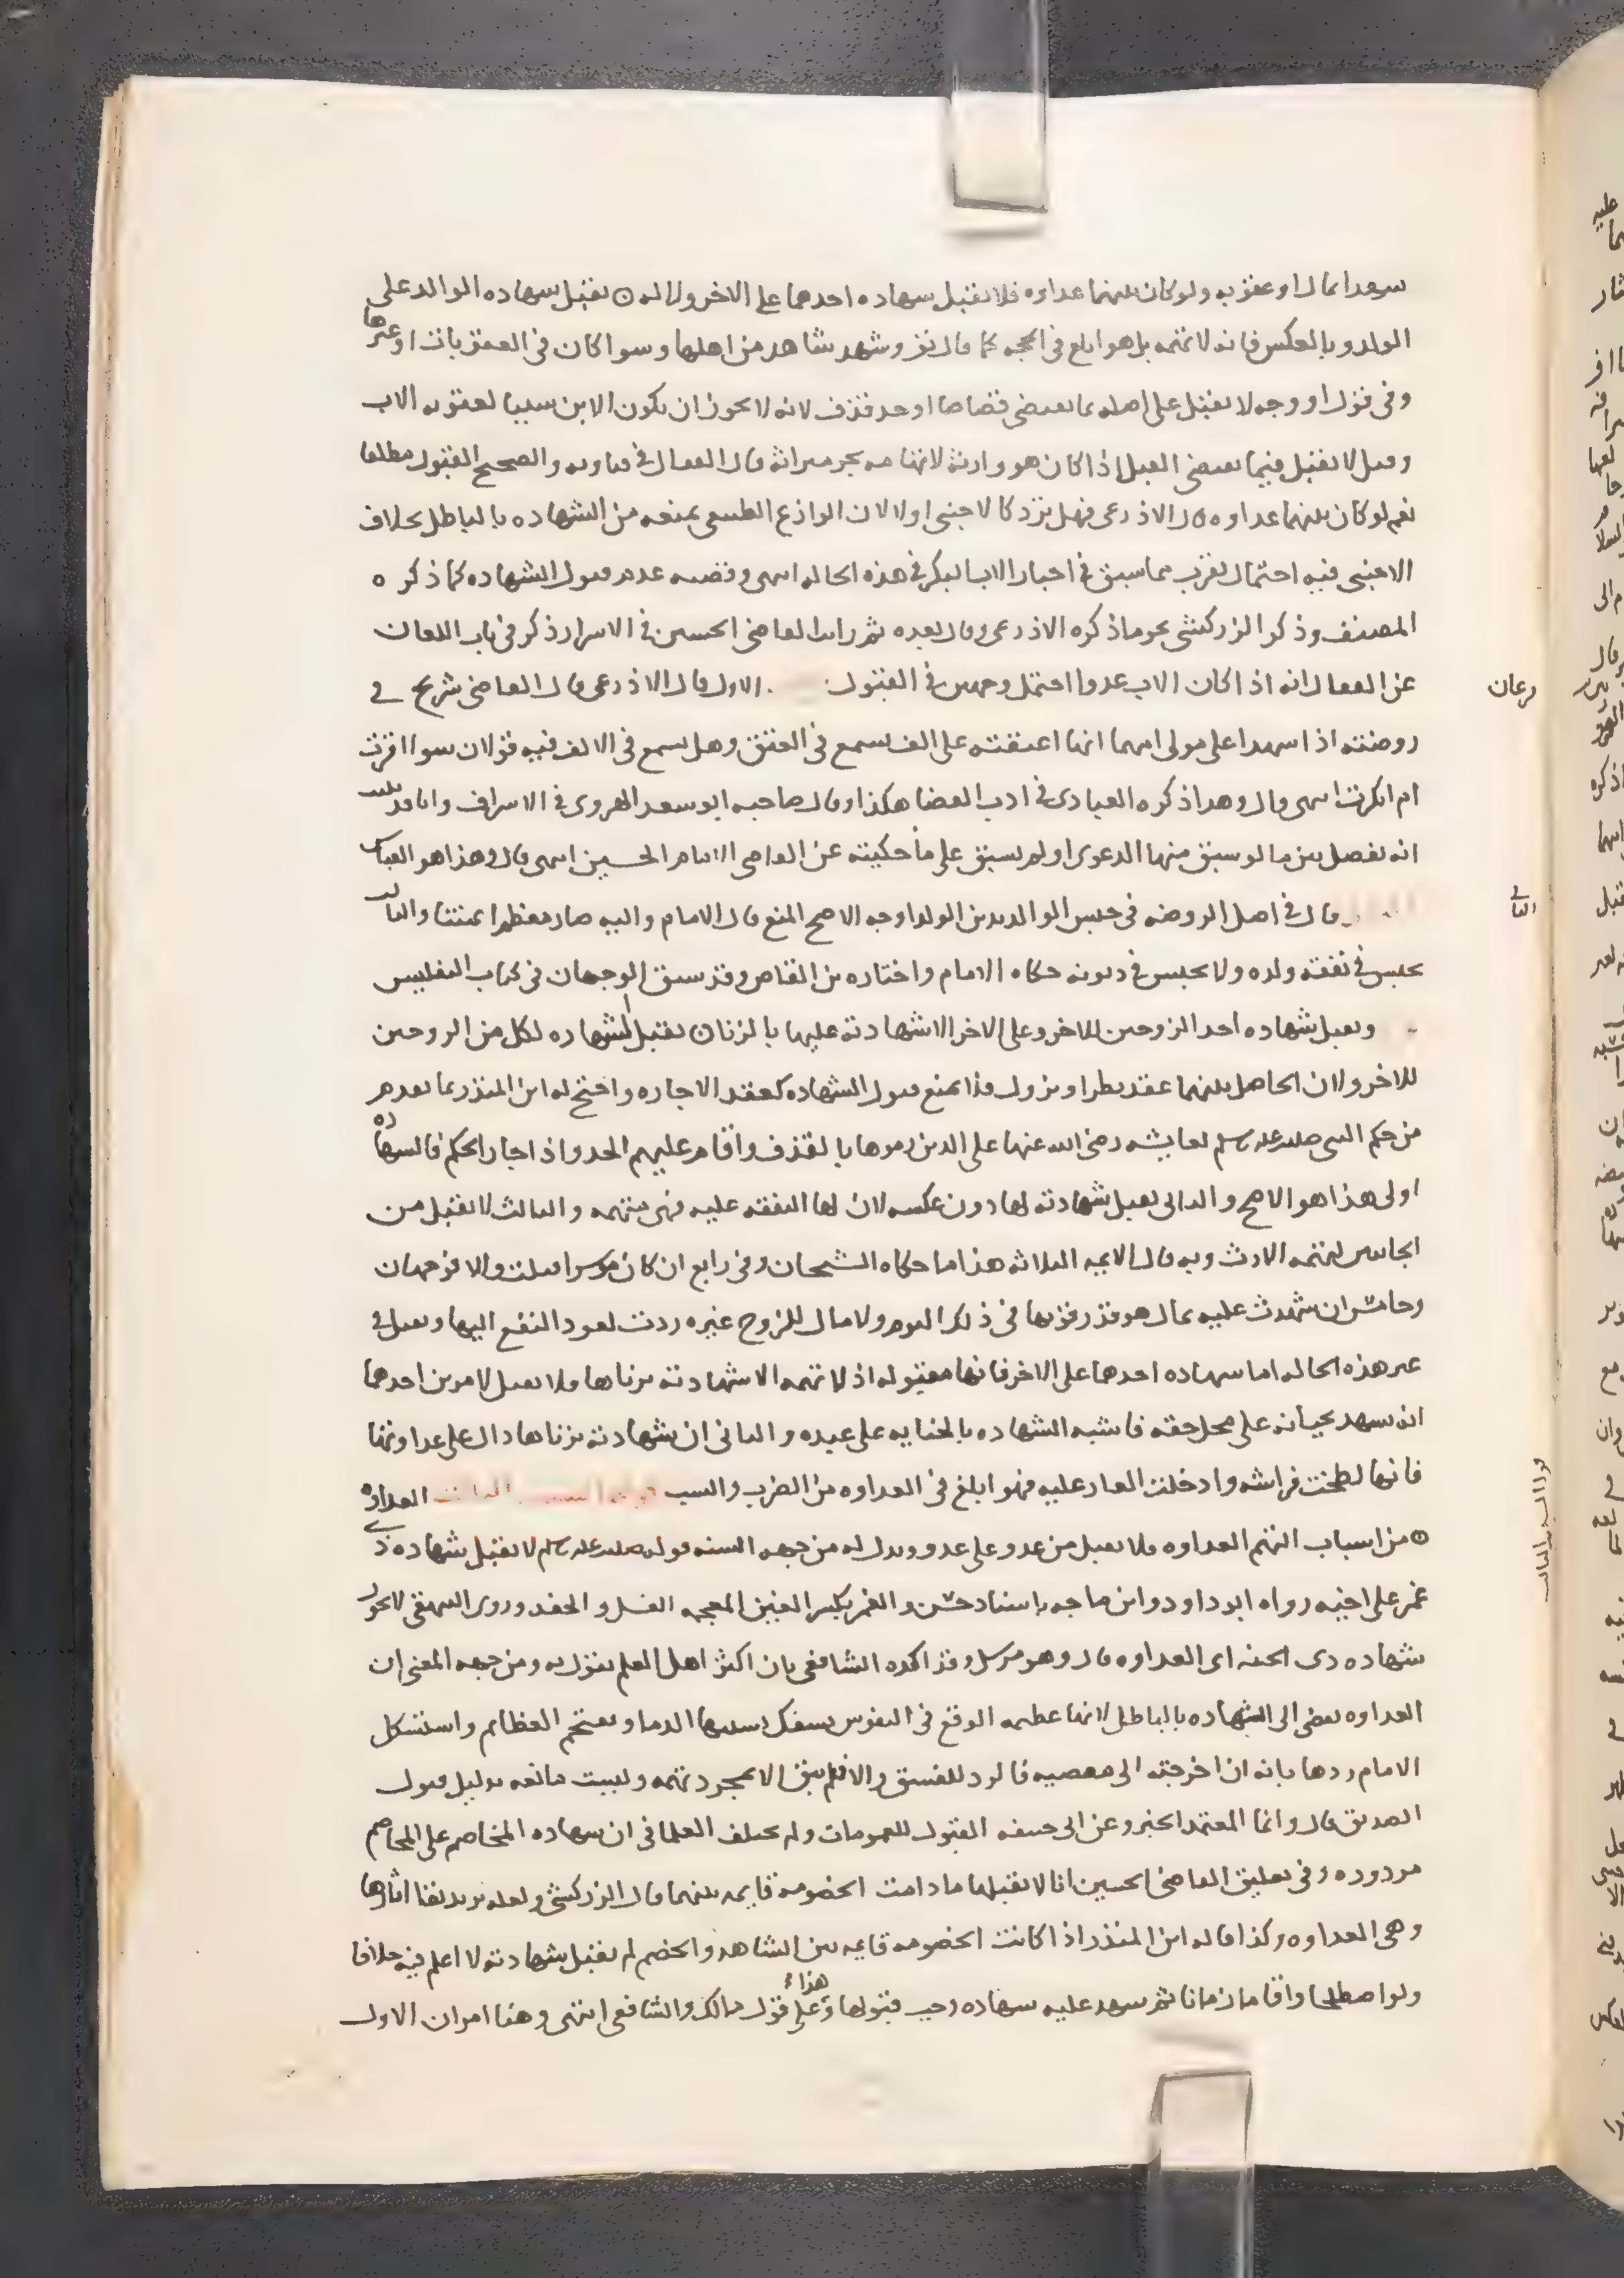 شهد ا بمال او عقوبه ولو كان بينهما عداوه فلا تقبل شهاده احدهما على الاخر ولا له ⊙ تقبل شهاده الوالد على
الولد و بالعكس فانه لا تهمه بل هو ابلغ في الحجه كما قال تعالى وشهد شاهد من اهلها وسوا كان في العقوبات او غيرها
وفي قول او وجه لا تقبل على اصله بما يقتضي قصاصا او حد قذف لانه لا يجوز ان يكون الابن سببا لعقوبه الاب
وقيل لا تقبل فيما يقتضي القتل اذا كان هو وارثه لانها منه بجر ميراثه قال القفال في فتاويه والصحيح القبول مطلقا
نعم لو كان بينهما عداوه قال الاذرعي فهل ترد كالاجنبي او لا لان الوازع الطبيعي يمنعه من الشهاده بالباطل بخلاف
الاجنبي فيه احتمال يقرب مما سبق في اجبار الاب البكر في هذه الحاله انتهى وقضيته عدم قبول الشهاده كما ذكره
المصنف وذكر الزركشي نحو ما ذكره الاذرعي وقال بعده ثم رايت القاضي الحسين في الاسرار ذكر في باب اللعان
عن القفال انه اذا كان الاب عدوا احتمل وجهين في القبول الاول قال الاذرعي قال القاضي شريح في
روضته اذا شهدا على مولى امهما انها اعتقته على الف يسمع في العتق وهل يسمع في الالف فيه قولان سوا اقرت
ام انكرت انتهى قال وهذا ذكره العبادي في ادب القضا هكذا وقال صاحبه ابو سعد الهروي في الاشراف وانا قد بينت
انه يفصل بين ما لو سبق منها الدعوى او لم يسبق على ما حكيته عن القاضي الامام الحسين انتهى قال وهذا هو القياس
قال في اصل الروضه في حبس الوالد بدين الولد اوجه الاصح المنع قال الامام واليه صار معظم ائمتنا والثالث
يحبس في نفقه ولده ولا يحبس في ديونه حكاه الامام واختاره بن القاص وقد سبق الوجهان في كتاب التفليس
وتقبل شهاده احد الزوجين للاخر وعلى الاخر الا شهادته عليها بالزنا ⊙ تقبل الشهاده لكل من الزوجين
للاخر ولان الحاصل بينهما عقد يطرا ويزول فلا يمنع قبول الشهاده كعقد الاجاره واحتج له ابن المنذر بما تقدم
من حكم النبي صلى الله عليه وسلم لعايشه رضي الله عنها على الذين رموها بالقذف واقام عليهم الحد واذا جاز الحكم فالشهاده
اولى هذا هو الاصح والثاني تقبل شهادته لها دون عكسه لان لها النفقه عليه فهي متهمه والثالث لا تقبل من
الجانبين لتهمه الارث وبه قال الايمه الثلاثه هذا ما حكاه الشيخان وفي رابع ان كان موسرا قبلت والا فوجهان
وخامس ان شهدت عليه بمال هو قدر قوتها في ذلك اليوم ولا مال للزوج غيره ردت لعود النفع اليها وتقبل في
غير هذه الحاله اما شهاده احدها على الاخر فانها مقبوله اذ لا تهمه الا شهادته بزناها فلا تقبل لامرين احدهما
انه يشهد بجنايه على محل حقه فاشبه الشهاده بالجنايه على عبده والثاني ان شهادته بزناها دال على عداوتها
فانها لطخت فراشه وادخلت العار عليه فهو ابلغ في العداوه من الضرب والسب العداوه
⊙ من اسباب التهم العداوه فلا تقبل من عدو على عدو ويدل له من جهه السنه قوله صلى الله عليه وسلم لا تقبل شهاده ذي
غمر على اخيه رواه ابو داود وابن ماجه باسناد حسن والغمر بكسر الغين المعجمه الغل والحقد وروى البيهقي لا تجوز
شهاده ذي الحنه اي العداوه قال وهو مرسل وقد اكده الشافعي بان اكثر اهل العلم يقول به ومن جهه المعنى ان
العداوه تفضي الى الشهاده بالباطل لانها عظيمه الوقع في النفوس يسفك بسببها الدما ويقتحم العظايم واستشكل
الامام ردها بانه ان اخرجته الى معصيه فالرد للفسق والا فلم يبق الا مجرد تهمه وليست مانعه بدليل قبول
الصديق قال وانما المعتمد الخبر وعن ابي حنيفه القبول للعمومات ولم يختلف العلما في ان شهاده المخاصم على المخاصم
مردوده وفي تعليق القاضي الحسين انا لا نقبلها ما دامت الخصومه قايمه بينهما قال الزركشي ولعله يريد بقا اثارها
وهي العداوه وكذا قاله ابن المنذر اذا كانت الخصومه قايمه بين الشاهد والخصم لم تقبل شهادته لا اعلم فيه خلافا
ولو اصطلحا واقاما زمانا ثم شهد عليه شهاده وجب قبولها وعلى هذا قول مالك والشافعي انتهى وهنا امران الاول
فرعان
الثاني